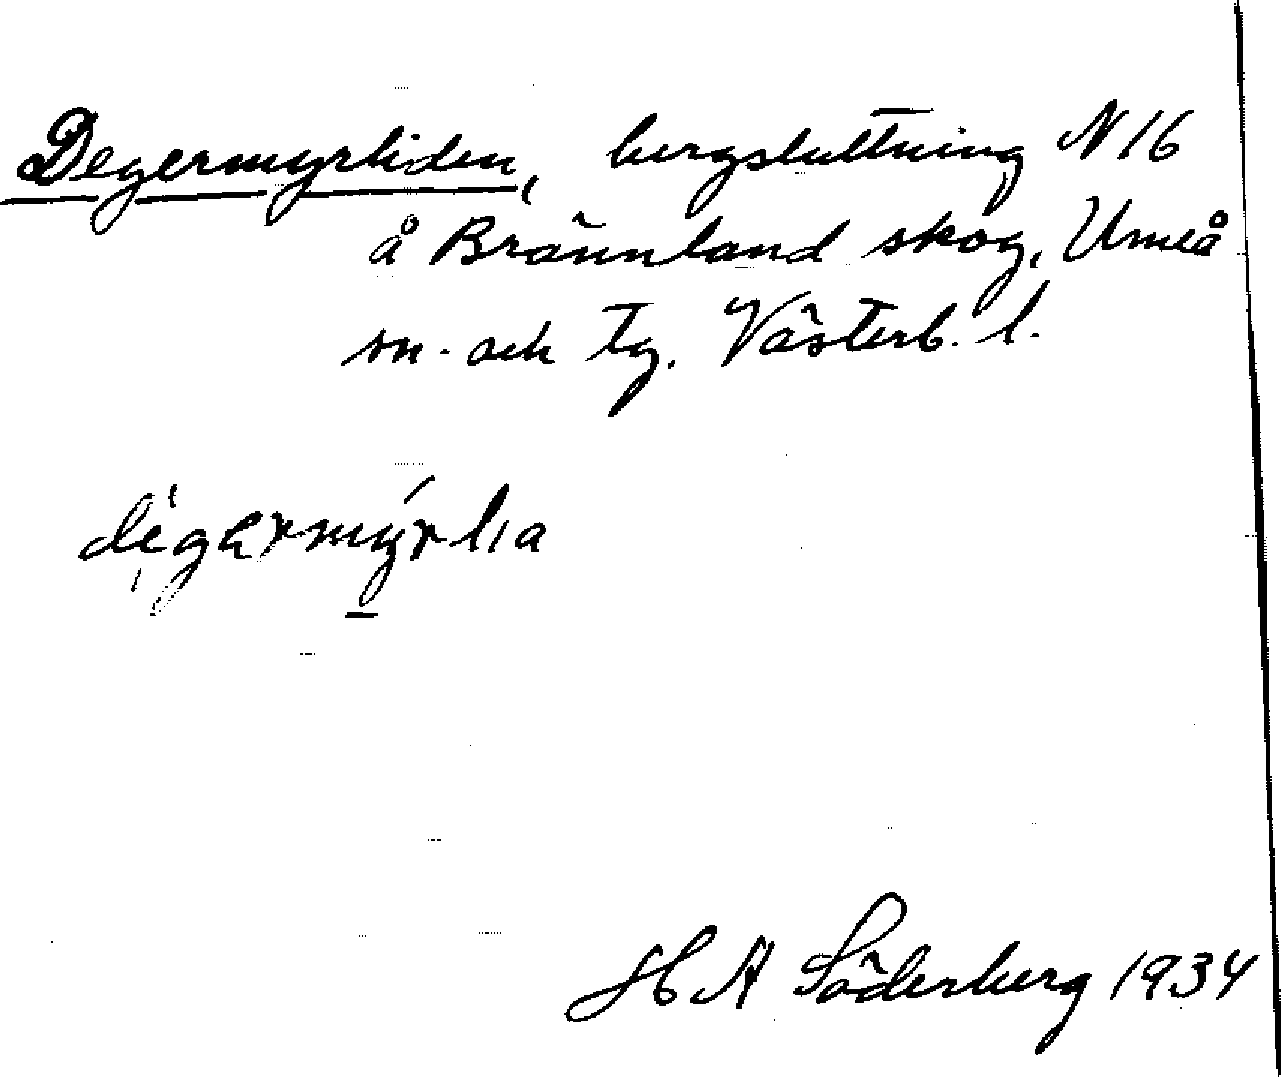 Degermyrliden, bergsluttning N 16
å Brännland skog, Umeå
sn. och tg. Västerb. l.
degermyrlia
H A Söderberg 1934